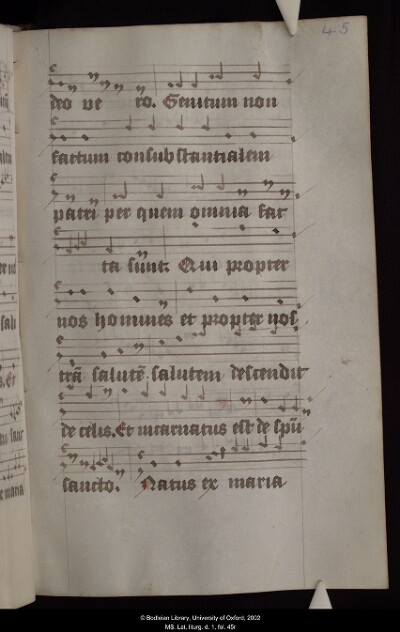 45
deo ve ro. Genitum non
factum consubstantialem
patri per quem omnia fac
ta sunt. Qui propter
nos homines et propter nos
trā salutē salutem descendit
de celis. Et incarnatus est de spū
sancto. Natus ex maria
© Bodleian Library, University of Oxford, 2002
MS. Lat. liturg. d. 1, fol. 45r